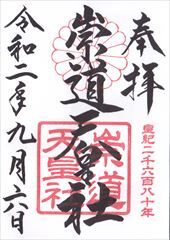 奉拝
皇紀二千六百八十年
崇道天皇社
崇道
天皇社
令和二年九月六日